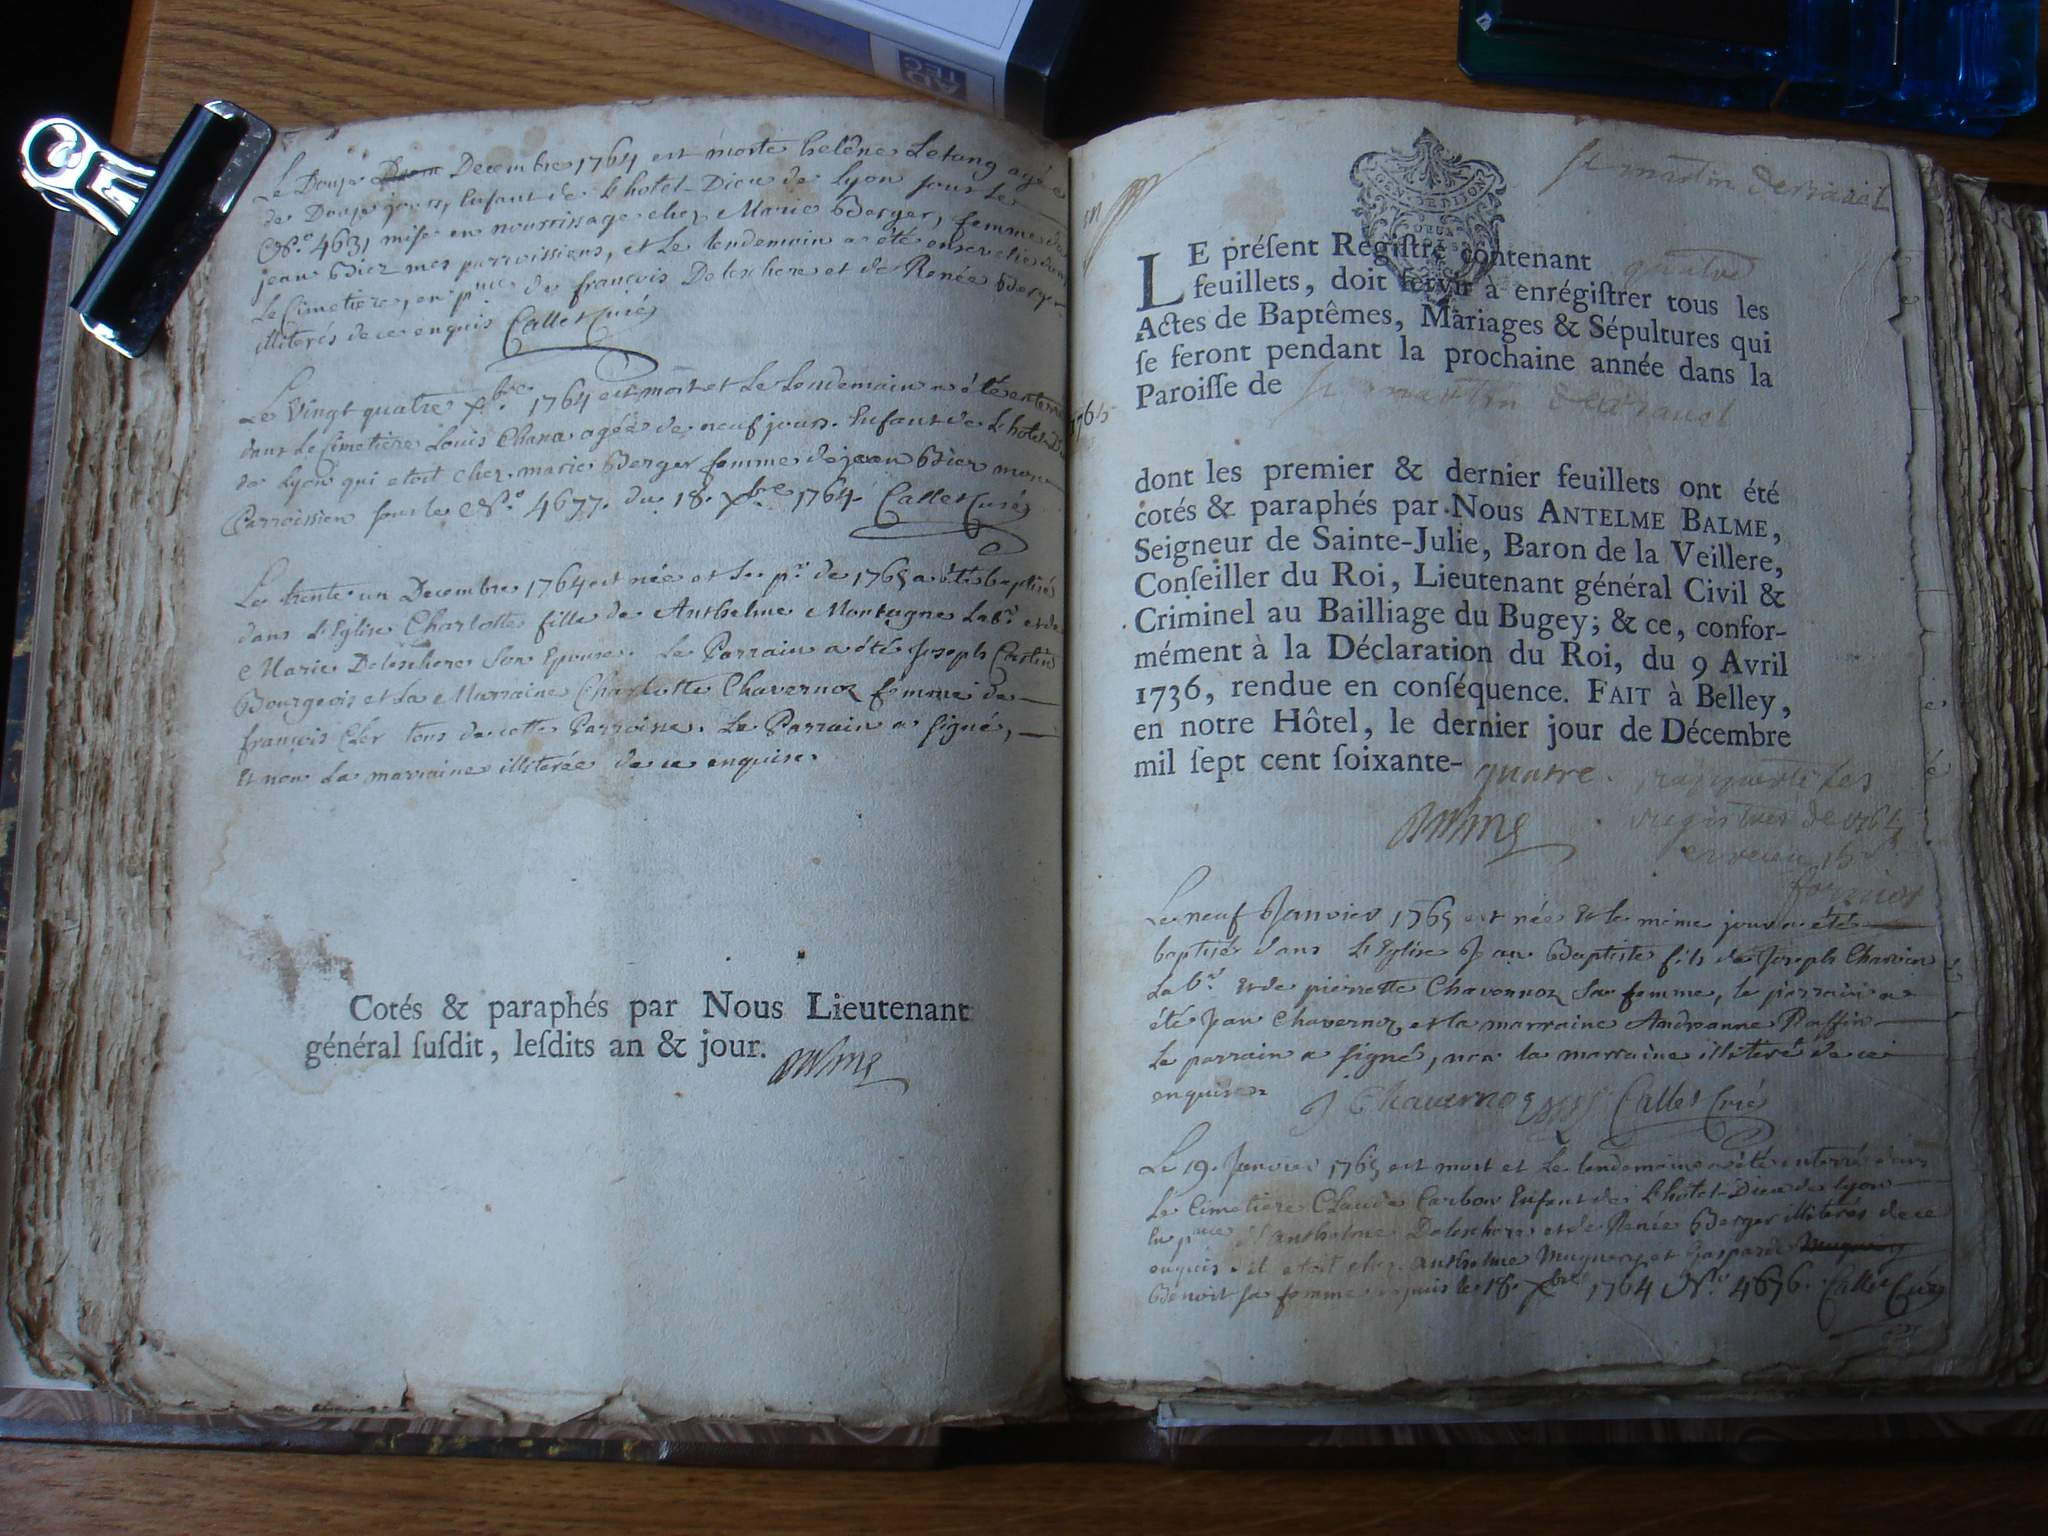 AD
TEC
Le Douze Decembre 1764 est morte helêne Letang agée
de Douze jours, Enfant de L'hotel-Dieu de Lyon sous Le
N.º 4631 mise en nourrissage chez Marie Berger, femme de
jean Biez mes parroissiens, et Le lendemain a été ensevelie dans
Le Cimetiere, en p.nce de françois Deleschere et de Renée Berger
illiterés de ce enquis Callet Curé
Le Vingt quatre Xbre 1764 est mort et Le Lendemain a été enterré
dans Le Cimetiere Louis Chana agée de neuf jours. Enfant de L'hotel-D
de Lyon qui etoit chez marie Berger femme de jean Biez mon
Parroissien sous le N.º 4677. du 18. Xbre 1764 Callet Curé
Le trente un Decembre 1764 est née et Le p.r de 1765 a été baptisée
dans L'Eglise Charlotte fille de Anthelme Montagne Lab.r et de
Marie Deleschere Son Epouse. Le Parrain a été Joseph
Bourgeois et La Marraine Charlotte Chavernoz femme de
françois Cler tous de cette Parroisse. Le Parrain a signé,
Et non La marraine illiterée de ce enquise.
Cotés & paraphés par Nous Lieutenant
général ſuſdit, leſdits an & jour.
Balme
GEN. DE DIJON
DEUX
SOLS
St martin
1765
LE préſent Regiſtre contenant quatre
feuillets, doit ſervir à enrégiſtrer tous les
Actes de Baptêmes, Mariages & Sépultures qui
ſe feront pendant la prochaine année dans la
Paroiſſe de St martin
dont les premier & dernier feuillets ont été
cotés & paraphés par Nous ANTELME BALME,
Seigneur de Sainte-Julie, Baron de la Veillere,
Conſeiller du Roi, Lieutenant général Civil &
Criminel au Bailliage du Bugey; & ce, confor-
mément à la Déclaration du Roi, du 9 Avril
1736, rendue en conſéquence. FAIT à Belley,
en notre Hôtel, le dernier jour de Décembre
mil ſept cent ſoixante-quatre. rapporté les
Balme registres de 1764
Le neuf Janvier 1765 est née Et le même jour a été
baptisé dans L'Eglise Jean Baptiste fils de Joseph
Lab.r Et de pierrette Chavernoz Sa femme, le parrain a
été Jean Chavernoz, et la marraine Andreanne Raffin
Le parrain a signé, non la marraine illiteré de ce
enquise J Chavernoz Callet Curé
Le 19. Janvier 1765 est mort et Le lendemain a été enterré dans
Le Cimetiere Claude Carbon Enfant de L'hotel-Dieu de Lyon
En p.nce d'anthelme Deleschere et de Renée Berger illiterés de ce
enquis. il etoit chez anthelme Muguery et Gasparde
Benoit sa femme depuis le 18. Xbre 1764 N.º 4676. Callet Curé